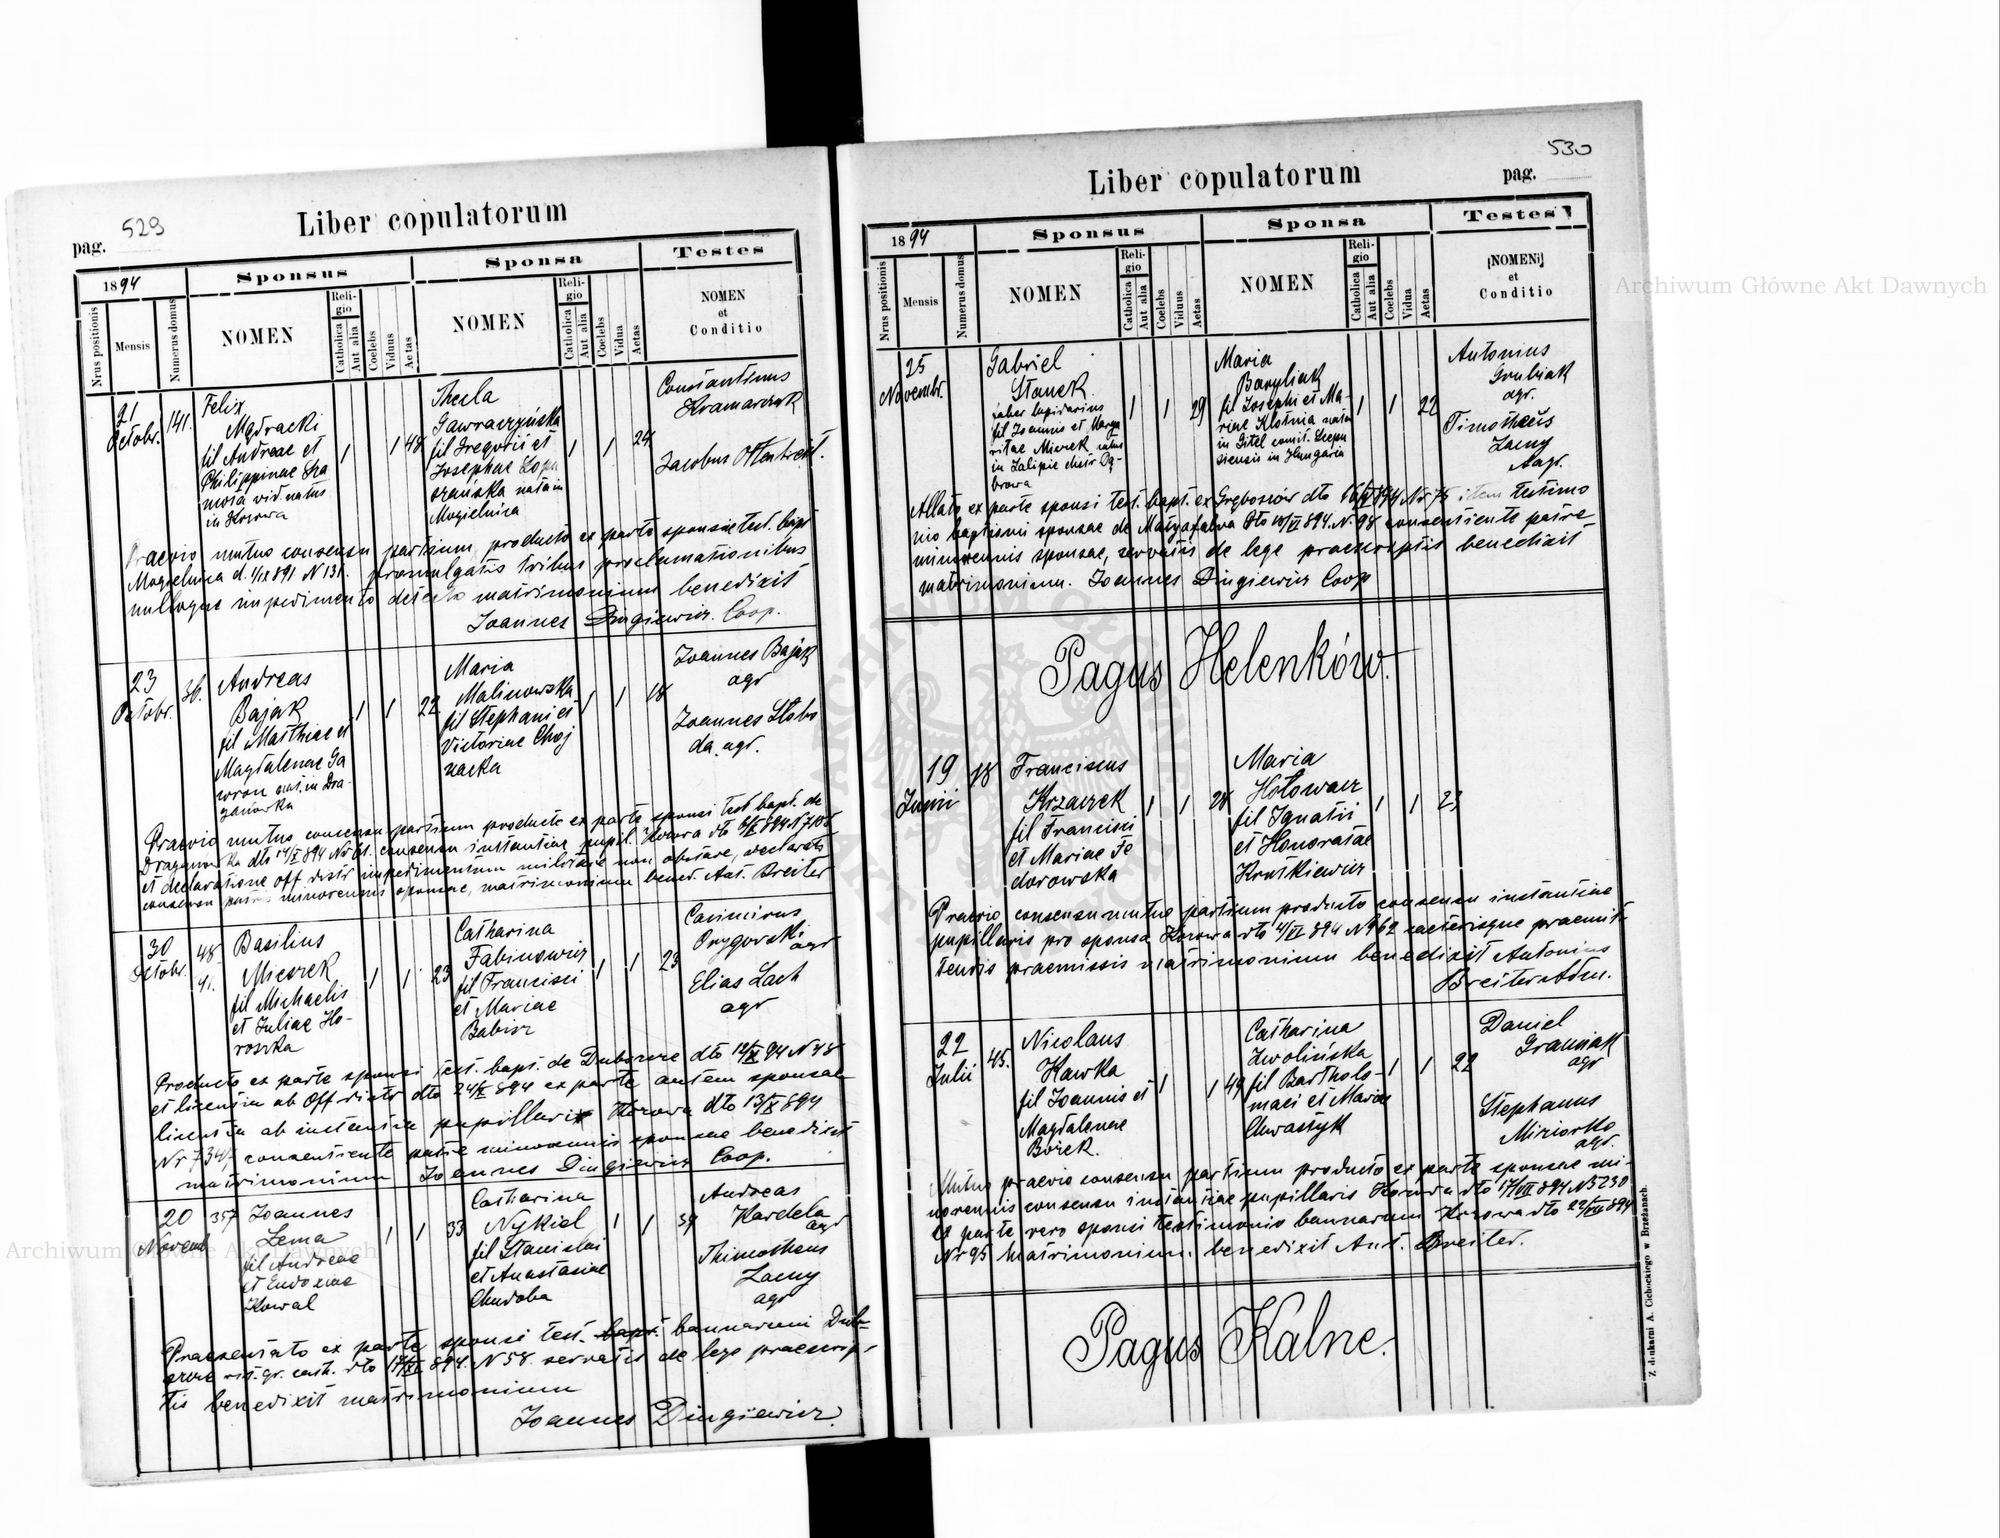 pag. 529
Liber copulatorum
1894
Sponsus
Sponsa
Testes
Nrus positionis
Mensis
Numerus domus
NOMEN
Religio
Catholica
Aut alia
Coelebs
Viduus
Aetas
NOMEN
Religio
Catholica
Aut alia
Coelebs
Vidua
Aetas
NOMEN
et
Conditio
21
Octobr.
141.
Felix
Mądracki
fil Andreae et
Philippinae
vid. natus
in Kozowa
1 1 48
Thecla
Gawraczyńska
fil Gregorii et
Josephae
nata in
Mogielnica
1 1 24
Constantinus
Kramarczyk
Jacobus
Praevio mutuo consensu partium, producto ex parte sponsae test. bapt
Mogielnica d. 1/IX 891 N 131. promulgatis tribus proclamationibus
nulloque impedimento detecto matrimonium benedixit
Joannes Dungiewicz Coop.
23
Octobr.
36.
Andreas
Bajak
fil Mathiae et
Magdalenae Ga
wron nat. in Dra-
ganówka
1 1 22
Maria
Malinowska
fil Stephani et
Victoriae Choj
nacka
1 1 18
Joannes Bajak
agr
Joannes Słobo
da agr.
Praevio mutuo consensu partium producto ex parte sponsi test bapt. de
Draganówka dto 14/X 894 Nr 61. consensu instantiae pupil. Kozowa dto
et declaratione off distr impedimentum militare non obstare, declarato
consensu patris minorennis sponsae, matrimonium bened. Ant. Breiter
30
Octobr.
48
41.
Basilius
Miczek
fil Michaelis
et Juliae Ho-
roszka
1 1 23
Catharina
Fabinowicz
fil Francisci
et Mariae
Babisz
1 1 23
Casimirus
Orzgowski
agr
Elias Lach
agr
Producto ex parte sponsi test. bapt. de Dubszcze dto 12/X 94 N 48
et licentia ab Off distr dto 24/X 894 ex parte autem sponsae
licentia ab instantia pupillari Kozowa dto 13/X 894
Nr 7347 consentiente patre minorennis sponsae benedixit
matrimonium Joannes Dungiewicz Coop.
20
Novemb
357
Joannes
Lema
fil Andreae
et Eudoxiae
Kowal
1 1 33
Catharina
Nykiel
fil Stanislai
et Anastasiae
Chudoba
1 1 39
Andreas
Kardela
agr
Thimotheus
Zacny
agr
Praesentato ex parte sponsi test. bapt. bannorum Dub-
szcze rit. gr. cath. dto XI 894. N 58. servatis de lege praescrip-
tis benedixit matrimonium
Joannes Dungiewicz
530
Liber copulatorum
pag.
1894
Sponsus
Sponsa
Testes
Nrus positionis
Mensis
Numerus domus
NOMEN
Religio
Catholica
Aut alia
Coelebs
Viduus
Aetas
NOMEN
Religio
Catholica
Aut alia
Coelebs
Vidua
Aetas
NOMEN
et
Conditio
25
Novembr.
Gabriel
Stanek
faber lapidarius
fil Joannis et Marga
ritae Miczek natus
in Zalipie distr Dą-
browa
1 1 29
Maria
Baryliak
fil Josephi et Ma-
riae Klotnia nata
in Gitel comit. Scepu
siensis in Hungaria
1 1 22
Antonius
Grubiak
agr.
Timotheus
Zacny
agr.
Allato ex parte sponsi test. bapt. ex Gręboszów dto 894 Nr 75 item testimo
nio baptismi sponsae de Matyafalva dto 10/XI 894. N. 98 consentiente patre
minorennis sponsae, servatis de lege praescriptis benedixit
matrimonium. Joannes Dungiewicz Coop
Pagus Helenków.
19
Junii
18
Franciscus
Krzaczek
fil Francisci
et Mariae Fe
dorowska
1 1 28
Maria
Hołowacz
fil Ignatii
et Honoratae
Krutkiewicz
1 1 23
Praevio consensu mutuo partium producto consensu instantiae
pupillaris pro sponsa Kozowa dto 14/VI 894 N 962 caeterisque praemit-
tendis praemissis matrimonium benedixit Antonius
Breiter Adm.
22
Julii
45.
Nicolaus
Kawka
fil Joannis et
Magdalenae
Borek.
1 1 49
Catharina
Zwolińska
fil Bartholo-
maei et Mariae
Chwastyk
1 1 22
Daniel
Graniak
agr
Stephanus
Misiorko
agr.
Mutuo praevio consensu partium producto ex parte sponsae mi-
norennis consensu instantiae pupillaris Kozowa dto 17/VII 894 N 5230
ex parte vero sponsi testimonio bannorum Kozowa dto 22/VII 894
Nr 95 matrimonium benedixit Ant. Breiter.
Pagus Kalne.
Z drukarni A. Ciebockiego w Brzeżanach.
Archiwum Główne Akt Dawnych
Archiwum Główne Akt Dawnych